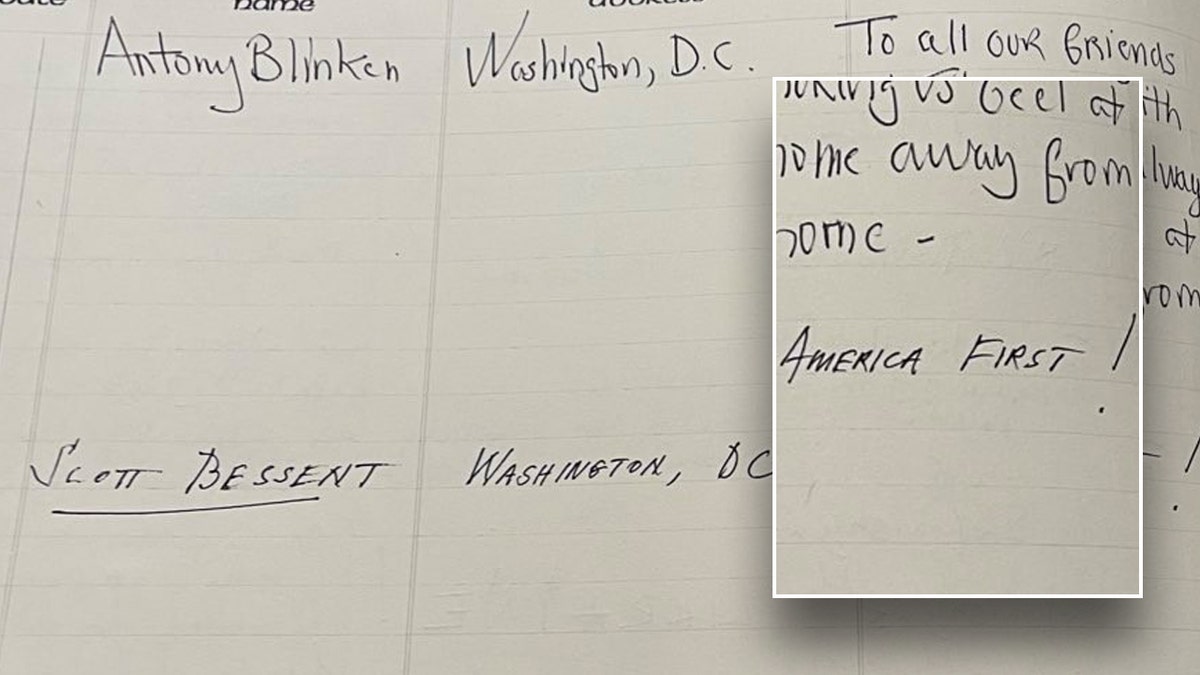 name
Antony Blinken Washington, D.C. To all our friends
us feel at
ome away from
ome -
at
rom
America First!
Scott Bessent Washington, DC